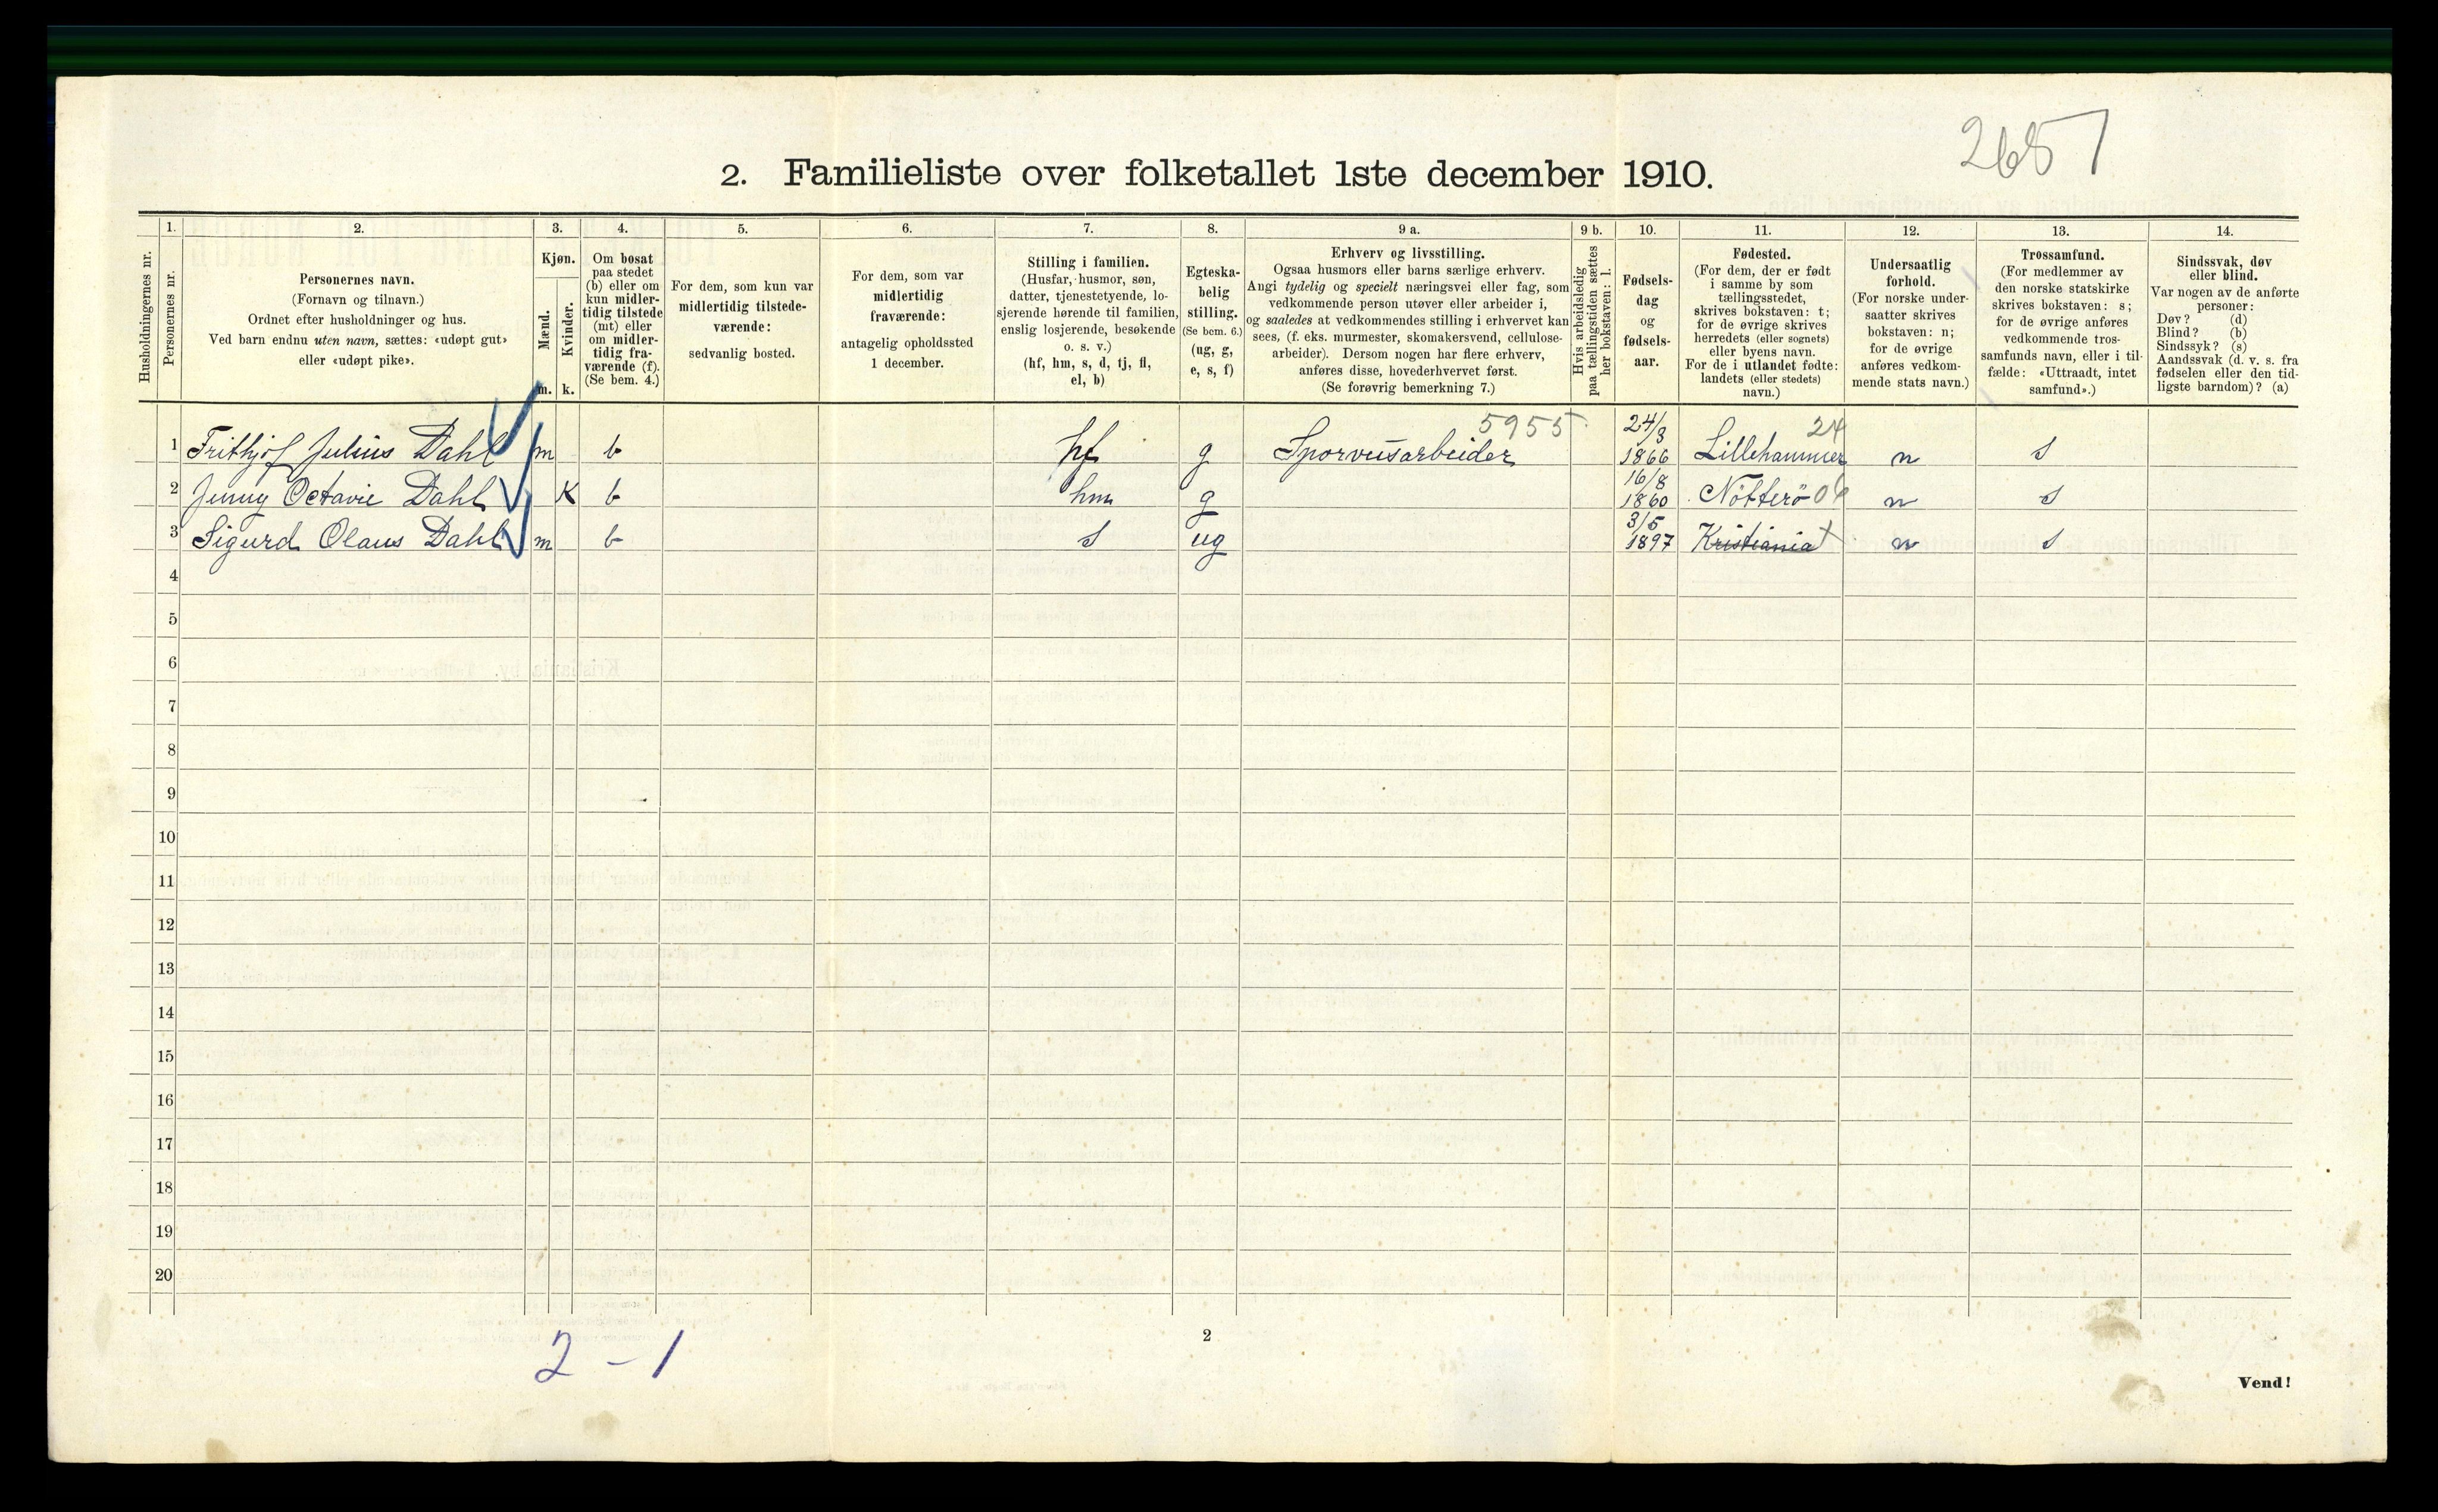 2657
2. Familieliste over folketallet 1ste december 1910.
Husholdningernes nr.
1.
Personernes nr.
2.
Personernes navn.
(Fornavn og tilnavn.)
Ordnet efter husholdninger og hus.
Ved barn endnu uten navn, sættes: «udøpt gut»
eller «udøpt pike».
3.
Kjøn.
Mænd.
Kvinder.
m.
k.
4.
Om bosat
paa stedet
(b) eller om
kun midler-
tidig tilstede
(mt) eller
om midler-
tidig fra-
værende (f).
(Se bem. 4.)
5.
For dem, som kun var
midlertidig tilstede-
værende:
sedvanlig bosted.
6.
For dem, som var
midlertidig
fraværende:
antagelig opholdssted
1 december.
7.
Stilling i familien.
(Husfar, husmor, søn,
datter, tjenestetyende, lo-
sjerende hørende til familien,
enslig losjerende, besøkende
o. s. v.)
(hf, hm, s, d, tj, fl,
el, b)
8.
Egteska-
belig
stilling.
(Se bem. 6.)
(ug, g,
e, s, f)
9 a.
Erhverv og livsstilling.
Ogsaa husmors eller barns særlige erhverv.
Angi tydelig og specielt næringsvei eller fag, som
vedkommende person utøver eller arbeider i,
og saaledes at vedkommendes stilling i erhvervet kan
sees, (f. eks. murmester, skomakersvend, cellulose-
arbeider). Dersom nogen har flere erhverv,
anføres disse, hovederhvervet først.
(Se forøvrig bemerkning 7.)
9 b.
Hvis arbeidsledig
paa tællingstiden sættes
her bokstaven: l.
10.
Fødsels-
dag
og
fødsels-
aar.
11.
Fødested.
(For dem, der er født
i samme by som
tællingsstedet,
skrives bokstaven: t;
for de øvrige skrives
herredets (eller sognets)
eller byens navn.
For de i utlandet fødte:
landets (eller stedets)
navn.)
12.
Undersaatlig
forhold.
(For norske under-
saatter skrives
bokstaven: n;
for de øvrige
anføres vedkom-
mende stats navn.)
13.
Trossamfund.
(For medlemmer av
den norske statskirke
skrives bokstaven: s;
for de øvrige anføres
vedkommende tros-
samfunds navn, eller i til-
fælde: «Uttraadt, intet
samfund».)
14.
Sindssvak, døv
eller blind.
Var nogen av de anførte
personer:
Døv? (d)
Blind? (b)
Sindssyk? (s)
Aandssvak (d. v. s. fra
fødselen eller den tid-
ligste barndom)? (a)
1 Frithjof Julius Dahl m b hf g Sporveisarbeider 5955 24/8 1866 Lillehammer 24 n s
2 Jenny Octavie Dahl K b hm g 16/8 1860 Nötterö n s
3 Sigurd Olaus Dahl m b s ug 3/5 1897 Kristiania t n s
4
5
6
7
8
9
10
11
12
13
14
15
16
17
18
19
20
2 - 1
2
Vend!